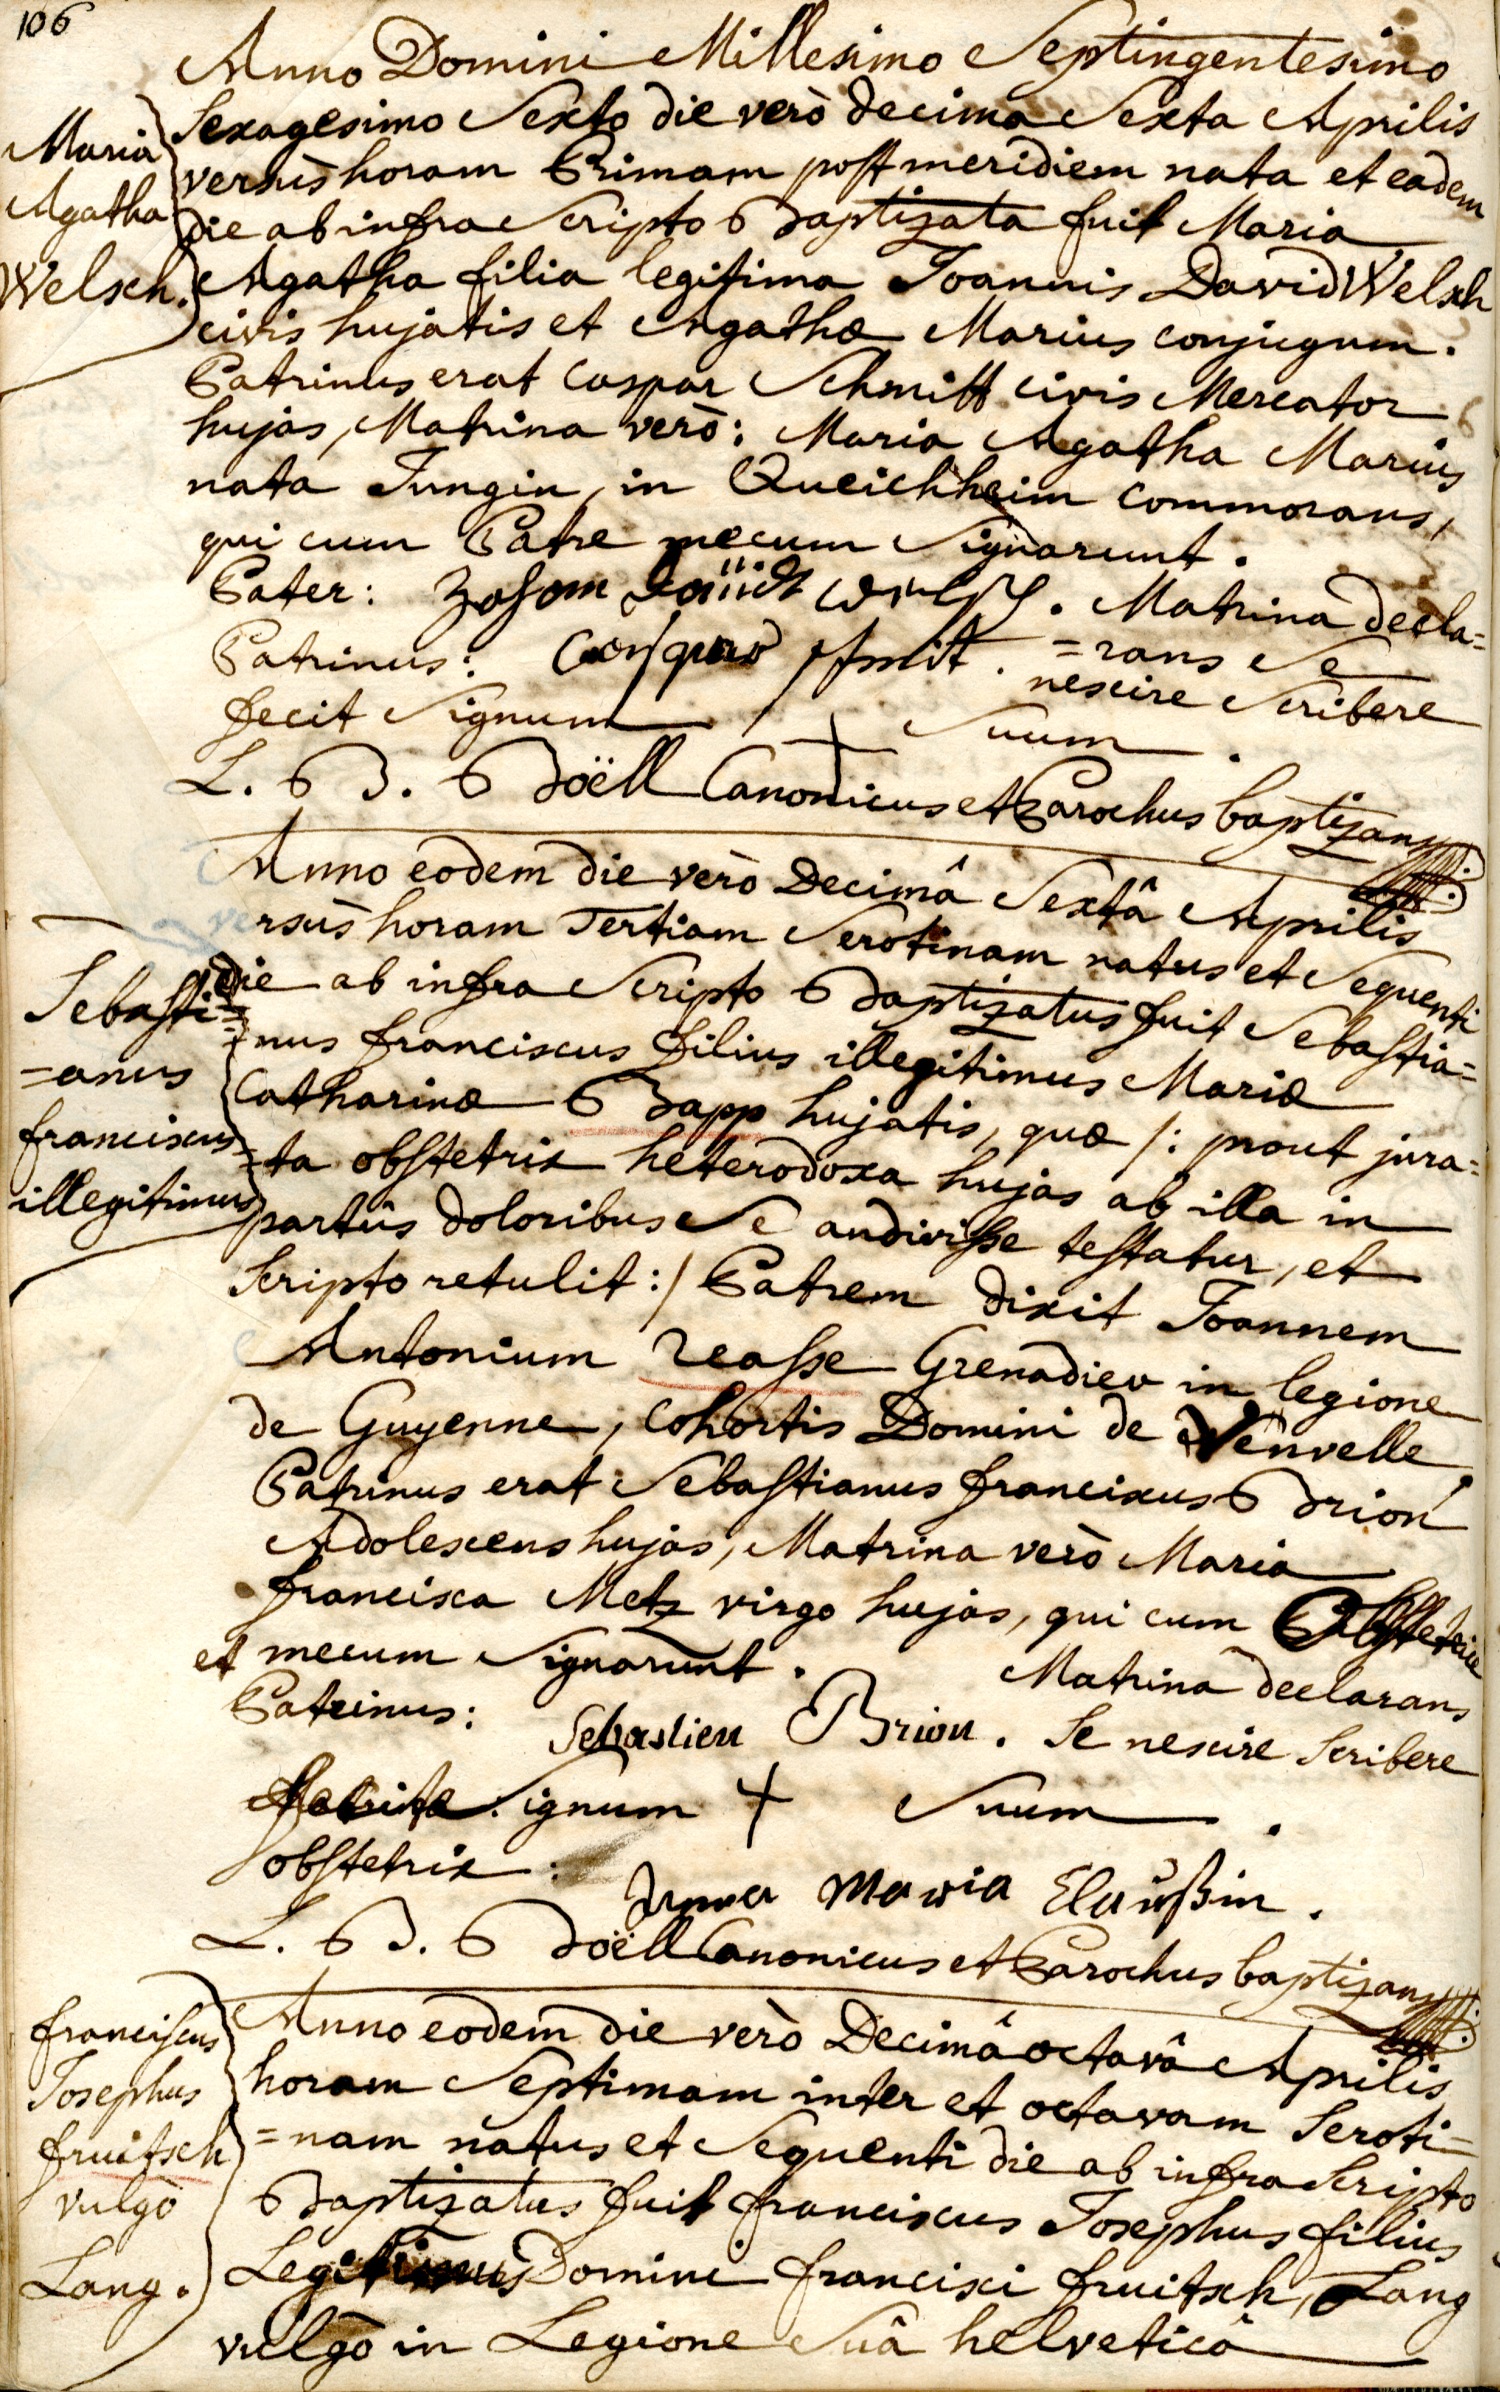 106
Anno Domini Millesimo Septingentesimo
Sexagesimo Sexto die verò decima Sexta Aprilis
versùs horam Primam post meridiem nata et eadem
die ab infra Scripto Baptizata fuit Maria
Agatha filia legitima Joannis David Welsch
civis hujatis et Agathæ Marius conjugum.
Patrinus erat Caspar Schmitt civis Mercator
hujas, Matrina verò: Maria Agatha Marius
nata Jungin, in Queichheim commorans,
qui cum Patre mecum Signarunt.
Maria
Agatha
Welsch.
Pater: . Matrina decla=
Patrinus: . =rans Se
nescire Scribere
fecit Signum + Suum .
L. B. Boëll Canonicus et Parochus baptizans
Anno eodem die verò Decimâ Sextâ Aprilis
versùs horam Tertiam Serotinam natus et Sequenti
die ab infra Scripto Baptizatus fuit Sebastia=
=nus franciscus filius illegitimus Mariæ
Catharinæ Bapp hujatis, quæ /: prout jura=
=ta obstetrix heterodoxa hujas ab illa in
partûs doloribus Se audivisse testatur, et
Scripto retulit :/ Patrem dixit Joannem
Antonium Reasse Grenadier in legione
de Guyenne, Cohortis Domini de Venvelle.
Patrinus erat Sebastianus franciscus Brion
Adolescens hujas, Matrina verò Maria
francisca Metz virgo hujas, qui cum Obstetrice
et mecum Signarunt.
Sebasti=
=anus
franciscus
illegitimus
Matrina declarans
Patrinus: Sebastien Brion. Se nescire Scribere
Signum + Suum .
obstetrix: Anna Maria Claußin.
L. B. Boëll Canonicus et Parochus baptizans
Anno eodem die verò Decimâ octavâ Aprilis
horam Septimam inter et octavam Seroti=
=nam natus et Sequenti die ab infra Scripto
Baptizatus fuit franciscus Josephus filius
Legitimus Domini francisci fruitsch, Lang
vulgò in Legione Suâ helveticâ
franciscus
Josephus
fruitsch
vulgò
Lang.